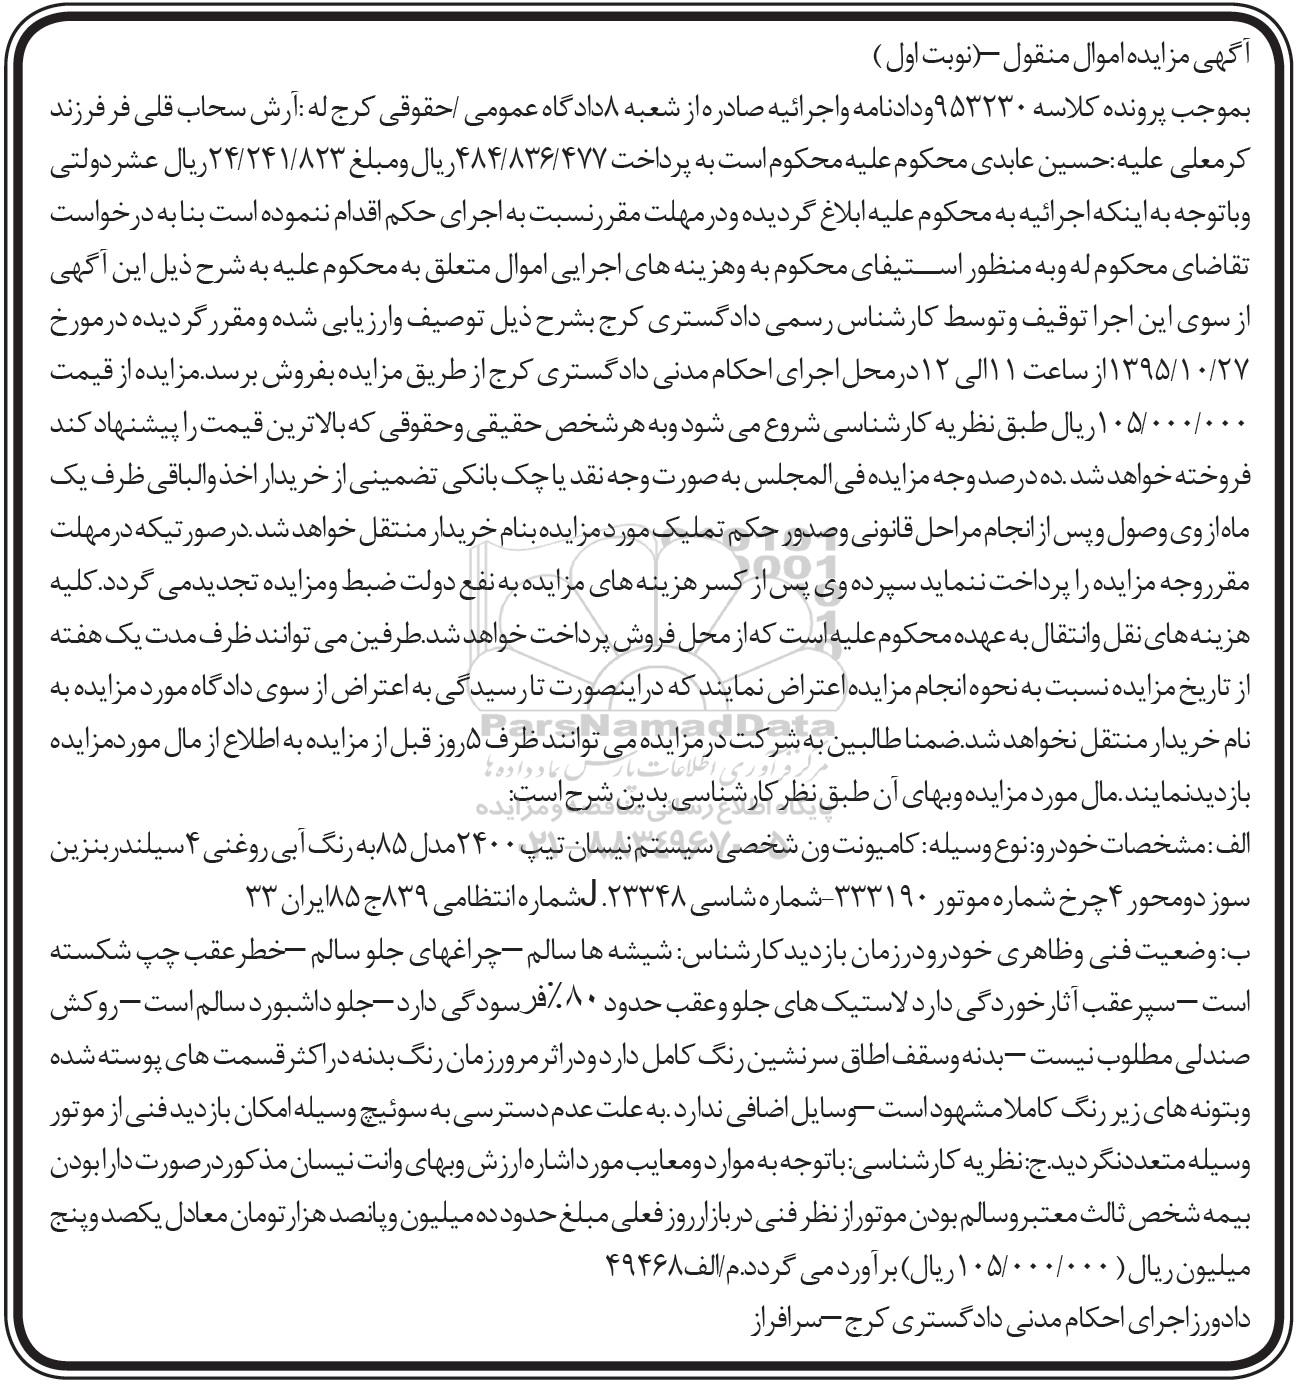 آگهی مزایده اموال منقول –(نوبت اول )
بموجب پرونده کلاسه ۹۵۳۲۳۰ودادنامه واجرائیه صادره از شعبه ۸دادگاه عمومی /حقوقی کرج له :آرش سحاب قلی فر فرزند
کرمعلی علیه :حسین عابدی محکوم علیه محکوم است به پرداخت ۴۸۴/۸۳۶/۴۷۷ریال ومبلغ ۲۴/۲۴۱/۸۲۳ریال عشردولتی
وباتوجه به اینکه اجرائیه به محکوم علیه ابلاغ گردیده ودرمهلت مقررنسبت به اجرای حکم اقدام ننموده است بنا به درخواست
تقاضای محکوم له وبه منظور استیفای محکوم به وهزینه های اجرایی اموال متعلق به محکوم علیه به شرح ذیل این آگهی
از سوی این اجرا توقیف وتوسط کارشناس رسمی دادگستری کرج بشرح ذیل توصیف وارزیابی شده ومقررگردیده درمورخ
۱۳۹۵/۱۰/۲۷از ساعت ۱۱الی ۱۲درمحل اجرای احکام مدنی دادگستری کرج از طریق مزایده بفروش برسد.مزایده از قیمت
۱۰۵/۰۰۰/۰۰۰ریال طبق نظریه کارشناسی شروع می شود وبه هرشخص حقیقی وحقوقی که بالاترین قیمت را پیشنهاد کند
فروخته خواهد شد .ده درصد وجه مزایده فی المجلس به صورت وجه نقد یا چک بانکی تضمینی از خریدار اخذ والباقی ظرف یک
ماه از وی وصول و پس از انجام مراحل قانونی وصدور حکم تملیک مورد مزایده بنام خریدار منتقل خواهد شد .درصورتیکه درمهلت
مقرروجه مزایده را پرداخت ننماید سپرده وی پس از کسر هزینه های مزایده به نفع دولت ضبط ومزایده تجدیدمی گردد.کلیه
هزینه های نقل وانتقال به عهده محکوم علیه است که از محل فروش پرداخت خواهد شد.طرفین می توانند ظرف مدت یک هفته
از تاریخ مزایده نسبت به نحوه انجام مزایده اعتراض نمایند که دراینصورت تا رسیدگی به اعتراض از سوی دادگاه مورد مزایده به
ParsNamadData
نام خریدار منتقل نخواهد شد.ضمنا طالبین به شرکت درمزایده می توانند ظرف ۵روز قبل از مزایده به اطلاع از مال موردمزایده
مرکز فرآوری اطلاعات پارس نماد داده ها
بازدیدنمایند .مال مورد مزایده وبهای آن طبق نظر کارشناسی بدین شرح است:
پایگاه اطلاع رسانی مناقصه و مزایده
الف : مشخصات خودرو: نوع وسیله : کامیونت ون شخصی سیستم نیسان تیپ ۲۴۰۰مدل ۸۵به رنگ آبی روغنی ۴سیلندربنزین
۰۲۱-۸۸۳۴۹۶۷۰-۵
سوز دومحور ۴چرخ شماره موتور ۳۳۳۱۹۰–شماره شاسی ۲۳۳۴۸. Jشماره انتظامی ۸۳۹ج ۸۵ایران ۳۳
ب : وضعیت فنی وظاهری خودرودرزمان بازدیدکارشناس : شیشه ها سالم –چراغهای جلو سالم –خطرعقب چپ شکسته
است –سپرعقب آثارخوردگی دارد لاستیک های جلو وعقب حدود ۸۰٪فرسودگی دارد –جلو داشبورد سالم است –روکش
صندلی مطلوب نیست –بدنه وسقف اطاق سرنشین رنگ کامل دارد ودراثرمرورزمان رنگ بدنه دراکثرقسمت های پوسته شده
وبتونه های زیر رنگ کاملا مشهود است –وسایل اضافی ندارد .به علت عدم دسترسی به سوئیچ وسیله امکان بازدید فنی از موتور
وسیله متعددنگردید.ج: نظریه کارشناسی : باتوجه به موارد ومعایب مورد اشاره ارزش وبهای وانت نیسان مذکوردرصورت دارا بودن
بیمه شخص ثالث معتبروسالم بودن موتوراز نظر فنی دربازارروز فعلی مبلغ حدود ده میلیون وپانصد هزارتومان معادل یکصد وپنج
میلیون ریال ( ۱۰۵/۰۰۰/۰۰۰ریال) برآورد می گردد.م/الف۴۹۴۶۸
دادورز اجرای احکام مدنی دادگستری کرج –سرافراز